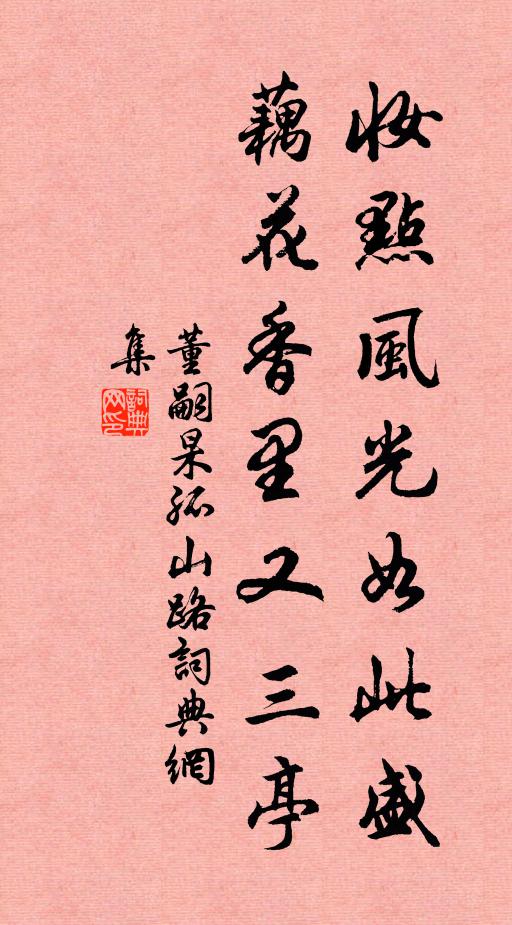 妝點風光如此盛
藕花香里又三亭
董嗣杲孤山路詞典網
集
詞典網印